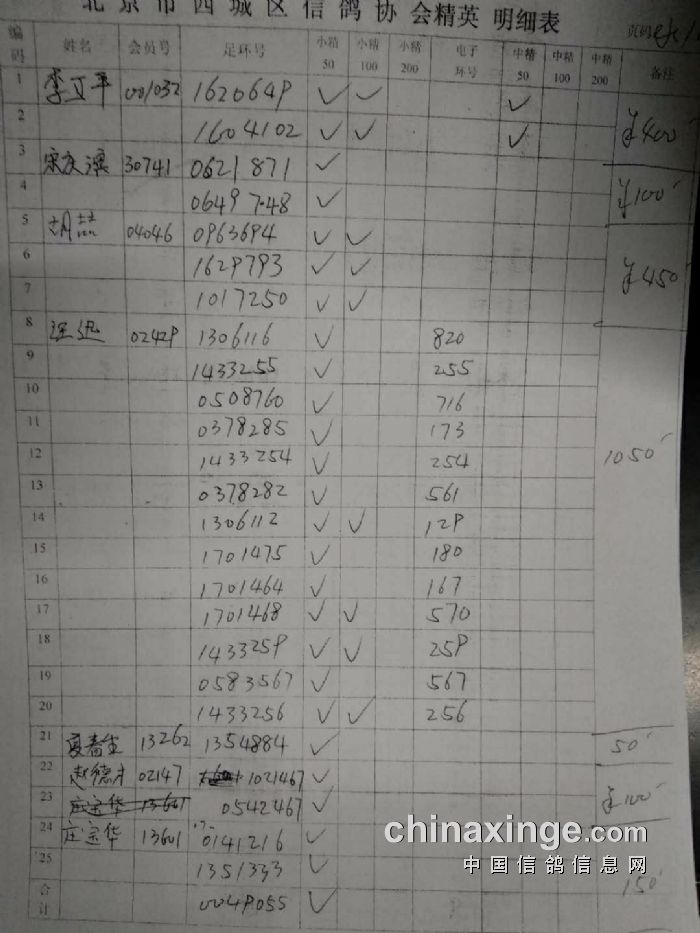 北京市西城区信鸽协会精英 明细表
页码
编码 姓名 会员号 足环号 小精50 小精100 小精200 电子环号 中精50 中精100 中精200 备注
1 001032 1620649 ✓ ✓ ✓
2 1604102 ✓ ✓ ✓ ¥400
3 宋庆滨 30741 0621871 ✓
4 0649748 ✓ ¥100
5 胡喆 04046 0963694 ✓ ✓
6 1629793 ✓ ✓ ¥450
7 1017250 ✓ ✓
8 02429 1306116 ✓ 820
9 1433255 ✓ 255
10 0508760 ✓ 716
11 0378285 ✓ 173
12 1433254 ✓ 254 1050
13 0378282 ✓ 561
14 1306112 ✓ ✓ 129
15 1701475 ✓ 180
16 1701464 ✓ 167
17 1701468 ✓ ✓ 570
18 1433259 ✓ ✓ 259
19 0583567 ✓ 567
20 1433256 ✓ ✓ 256
21 夏春生 13262 1354884 ✓ 50
22 赵德才 02147 1021467 ✓
23 庄宝华 13601 0542467 ✓ ¥100
24 庄宝华 13601 0141216 ✓
25 1351333 ✓ 150
合计 0049055 ✓
chinaxinge.com
中国信鸽信息网